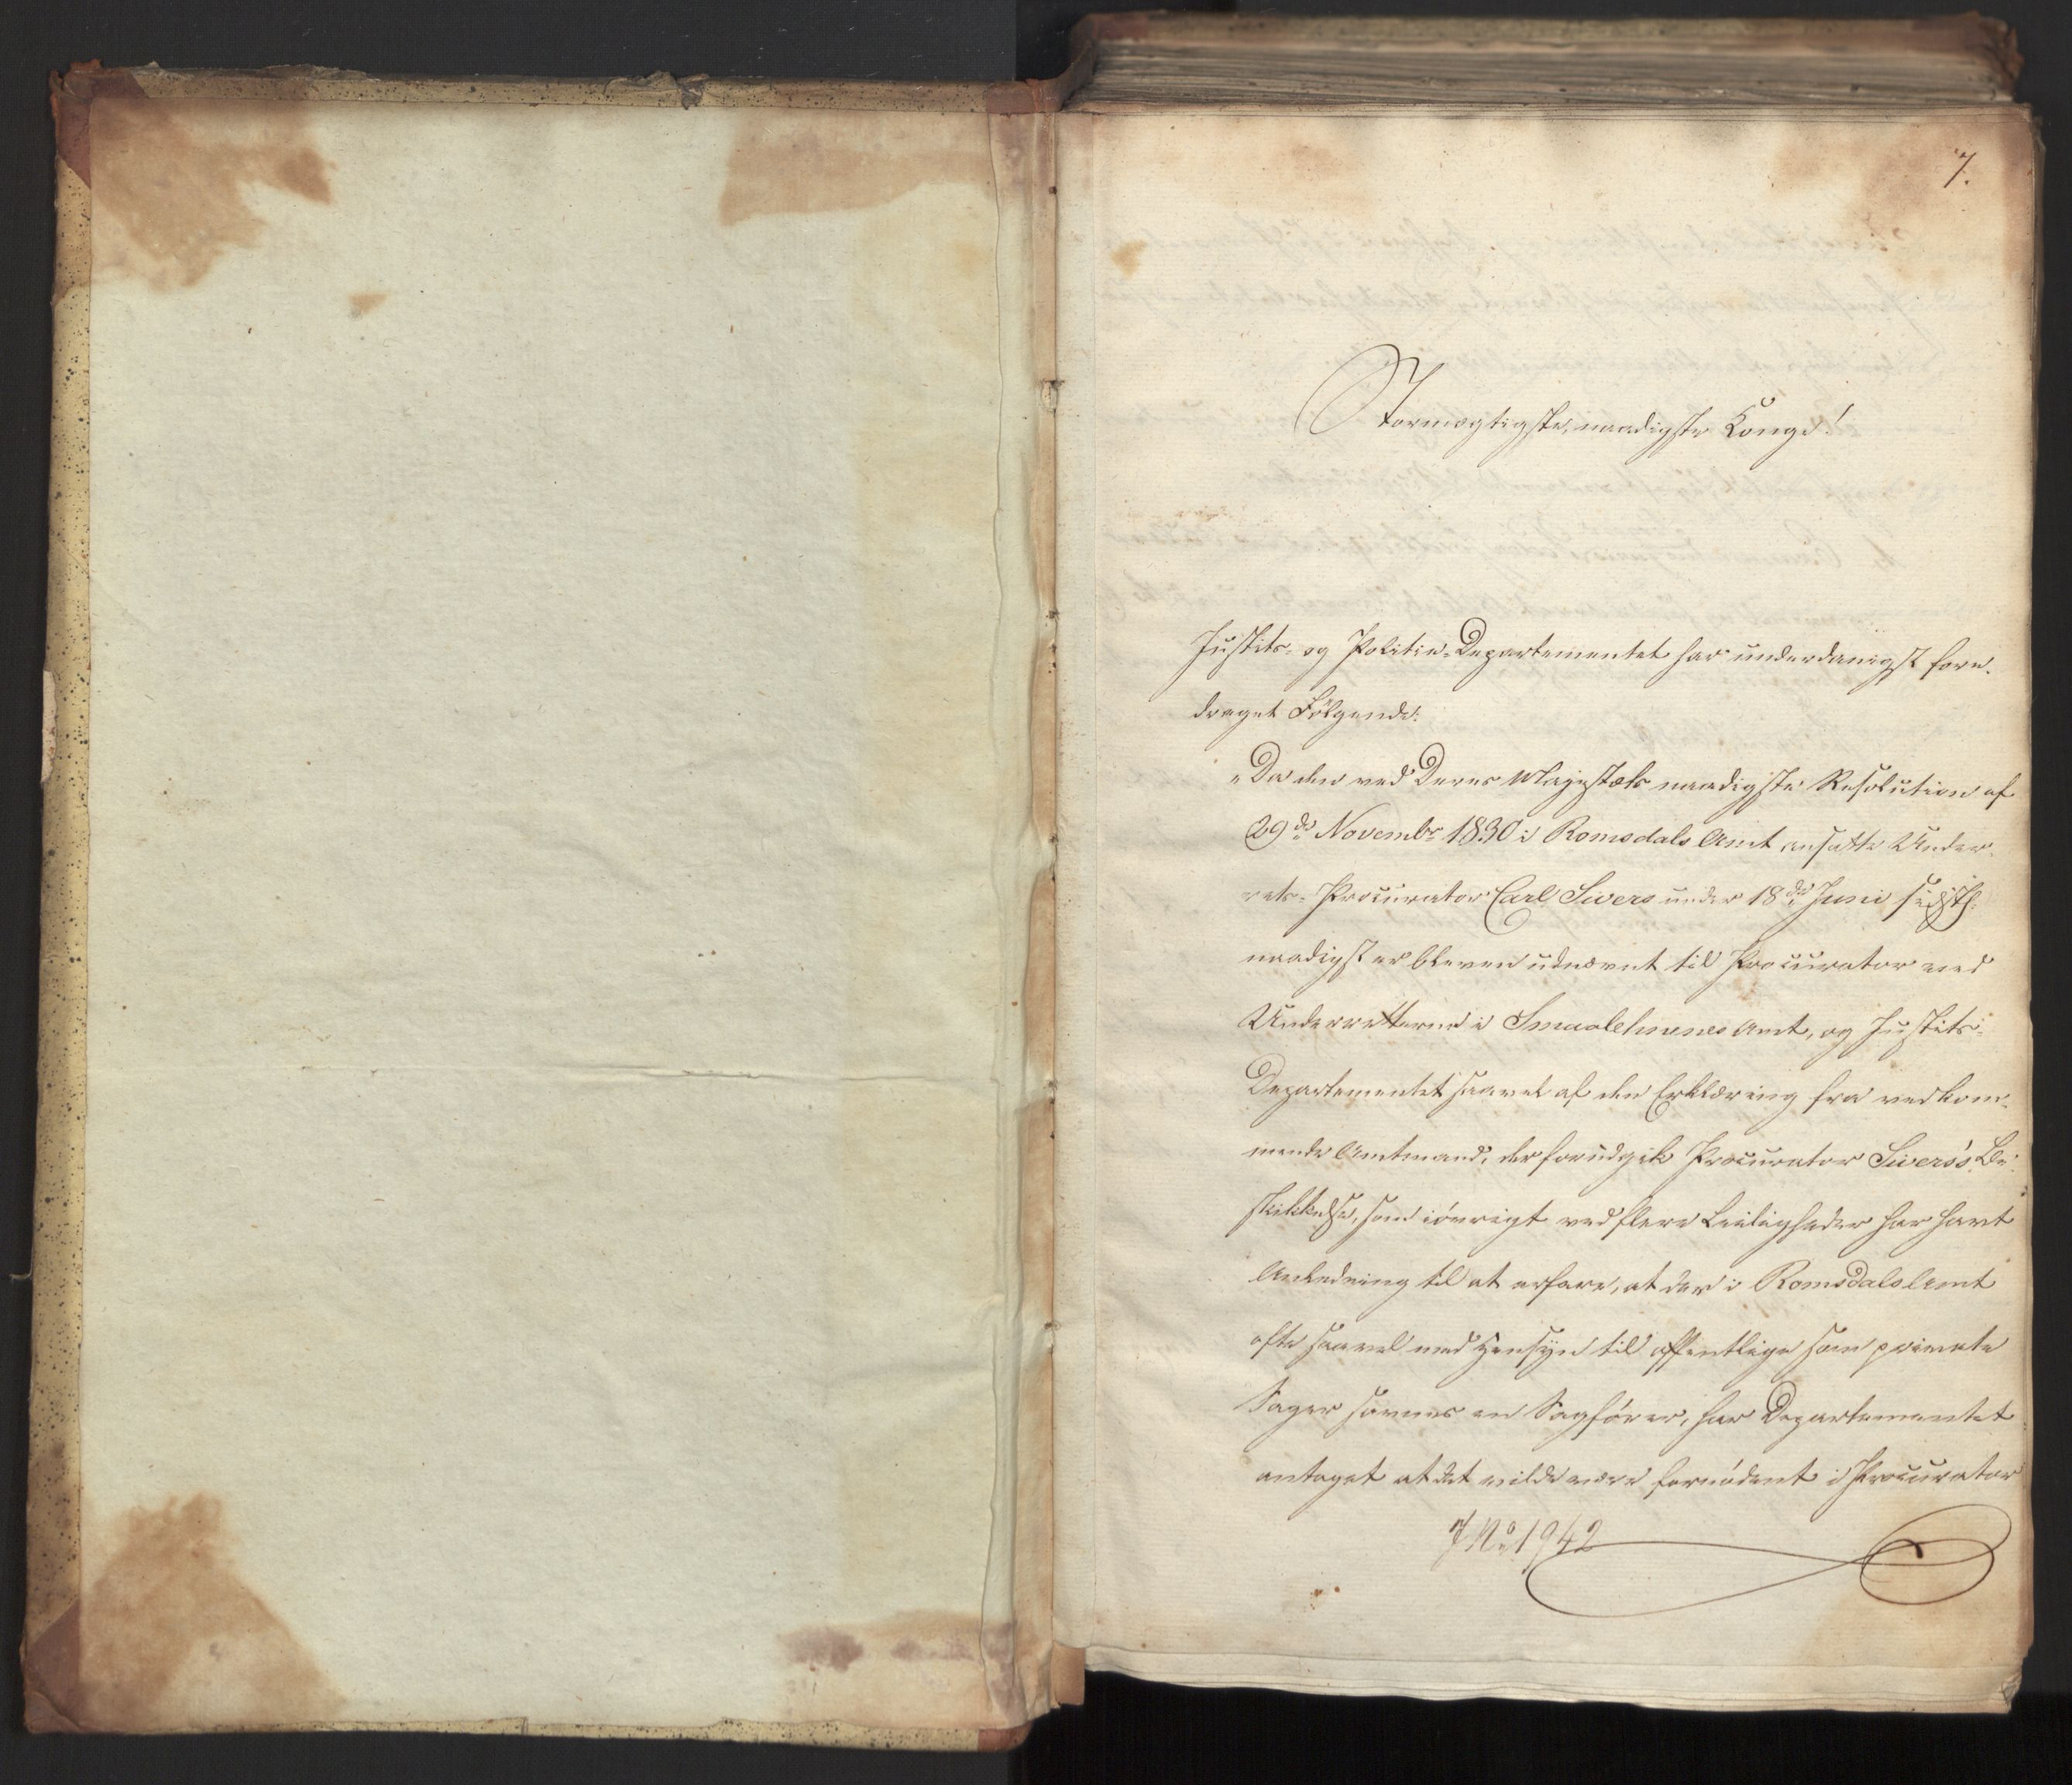 7.
Stormægtigste, naadigste Konge!
Justits- og Politie-Departementet har underdanigst fore-
draget Følgende:
"Da den ved Deres Majestæts naadigste Resolution af
29de Novembr 1830 i Romsdals Amt ansatte Under-
rets-Procurator Carl Sivers under 18de Juni sidstl:
naadigst er bleven udnævnt til Procurator ved
Underretterne i Smaalehnenes Amt, og Justits-
Departementet saavel af den Erklæring fra vedkom-
mende Amtmand, der forudgik Procurator Sivers's Be-
skikkelse, som iøvrigt ved flere Leiligheder har havt
Anledning til at erfare, at der i Romsdals Amt
ofte saavel med Hensyn til offentlige som private
Sager savnes en Sagfører, har Departementet
antaget at det vilde være fornødent i Procurator
7 No 1942